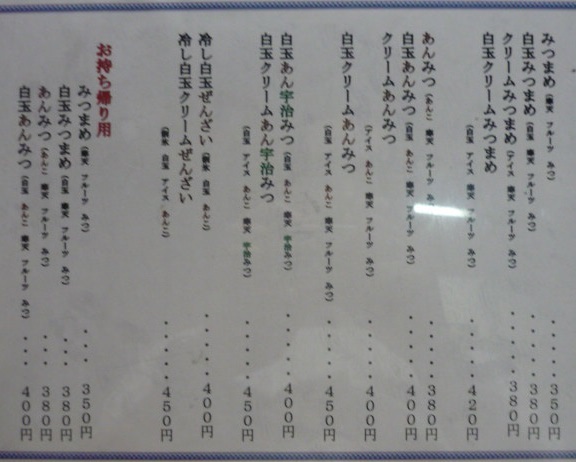 みつまめ(寒天 フルーツ みつ)・・・・・350円
白玉みつまめ(白玉 寒天 フルーツ みつ)・・・・380円
クリームみつまめ(アイス 寒天 フルーツ みつ)・・・・・380円
白玉クリームみつまめ
(白玉 アイス 寒天 フルーツ みつ)・・・・420円
あんみつ(あんこ 寒天 フルーツ みつ)・・・・・380円
白玉あんみつ(白玉 あんこ 寒天 フルーツ みつ)・・・・400円
クリームあんみつ
(アイス あんこ 寒天 フルーツ みつ)・・・・・400円
白玉クリームあんみつ
(白玉 アイス あんこ 寒天 フルーツ みつ)・・・・・450円
白玉あん宇治みつ(白玉 あんこ 寒天 宇治みつ)・・・・・400円
白玉クリームあん宇治みつ
(白玉 アイス あんこ 寒天 宇治みつ)・・・・・450円
冷し白玉ぜんざい(白玉 あんこ)・・・・・400円
冷し白玉クリームぜんざい
(白玉 アイス あんこ)・・・・・450円
お持ち帰り用
みつまめ(寒天 フルーツ みつ)・・・350円
白玉みつまめ(白玉 寒天 フルーツ みつ)・・・380円
あんみつ(あんこ 寒天 フルーツ みつ)・・・380円
白玉あんみつ(白玉 あんこ 寒天 フルーツ みつ)・・・・400円